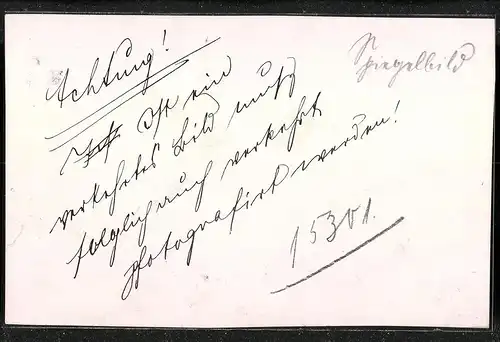 Achtung!
Spiegelbild
Ist Ist ein
verkehrtes Bild muß
folglich auch verkehrt
photografirt werden!
15301.